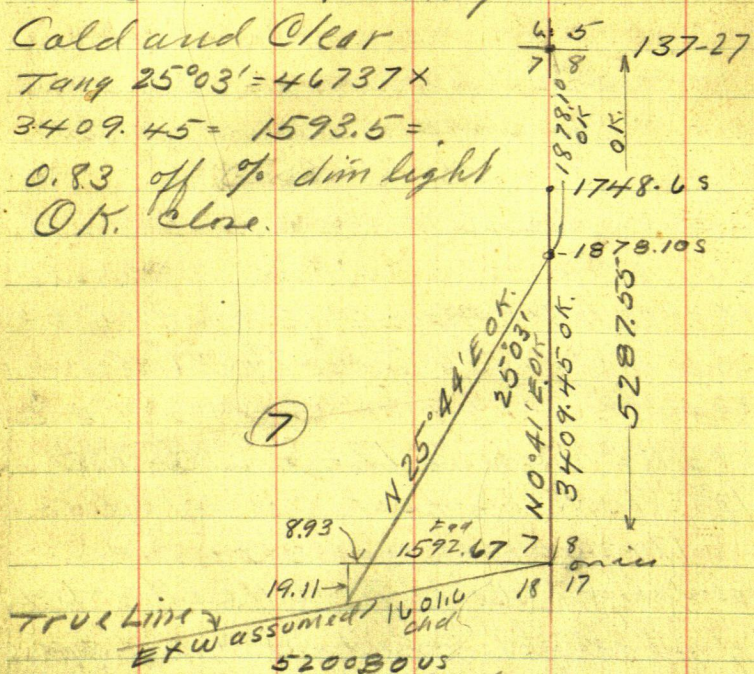 Cold and Clear
Tang 25°03' = 46737 x
3409.45 = 1593.5 =
0.83 off % dim light
OK. Close.
6 5
7 8
137-27
1878.10
OK
OK.
1748.6 s
1878.10 s
5287.55
N 25°44' E OK.
25°03'
N 0°41' E OK
3409.45 OK.
7
8.93
1592.67
7 8
18 17
19.11
True Line
E x W assumed
1601.6
chd